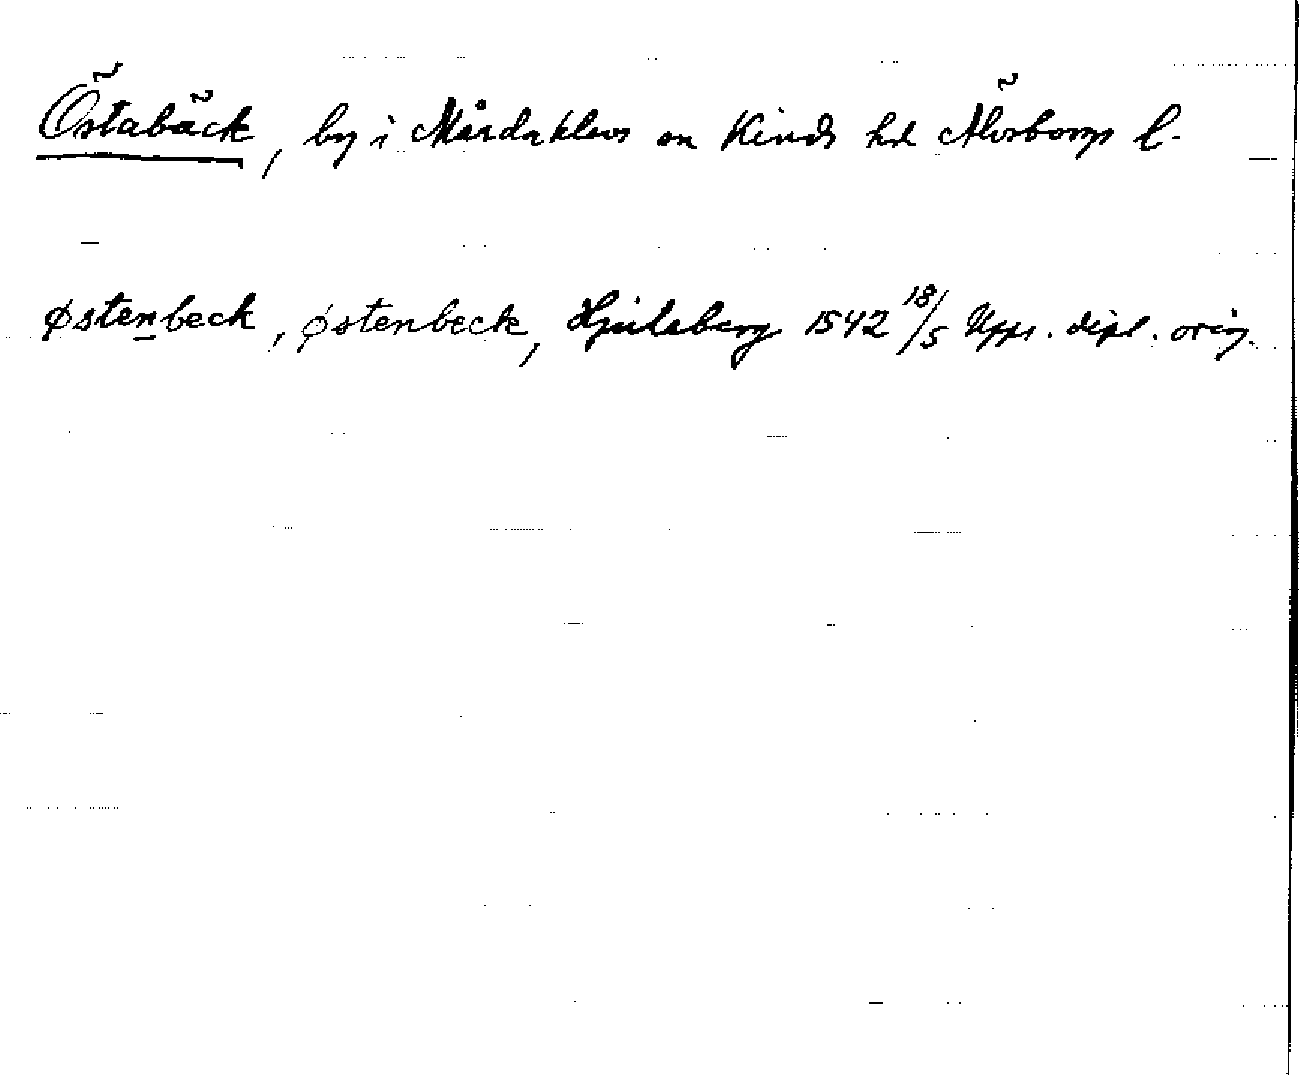 Östabäck, by i Mårdaklevs sn Kinds hd Älvsborgs l.
østenbeck, østenbeck, Hjulaberg 1542 18/5 Upps. dipl. orig.